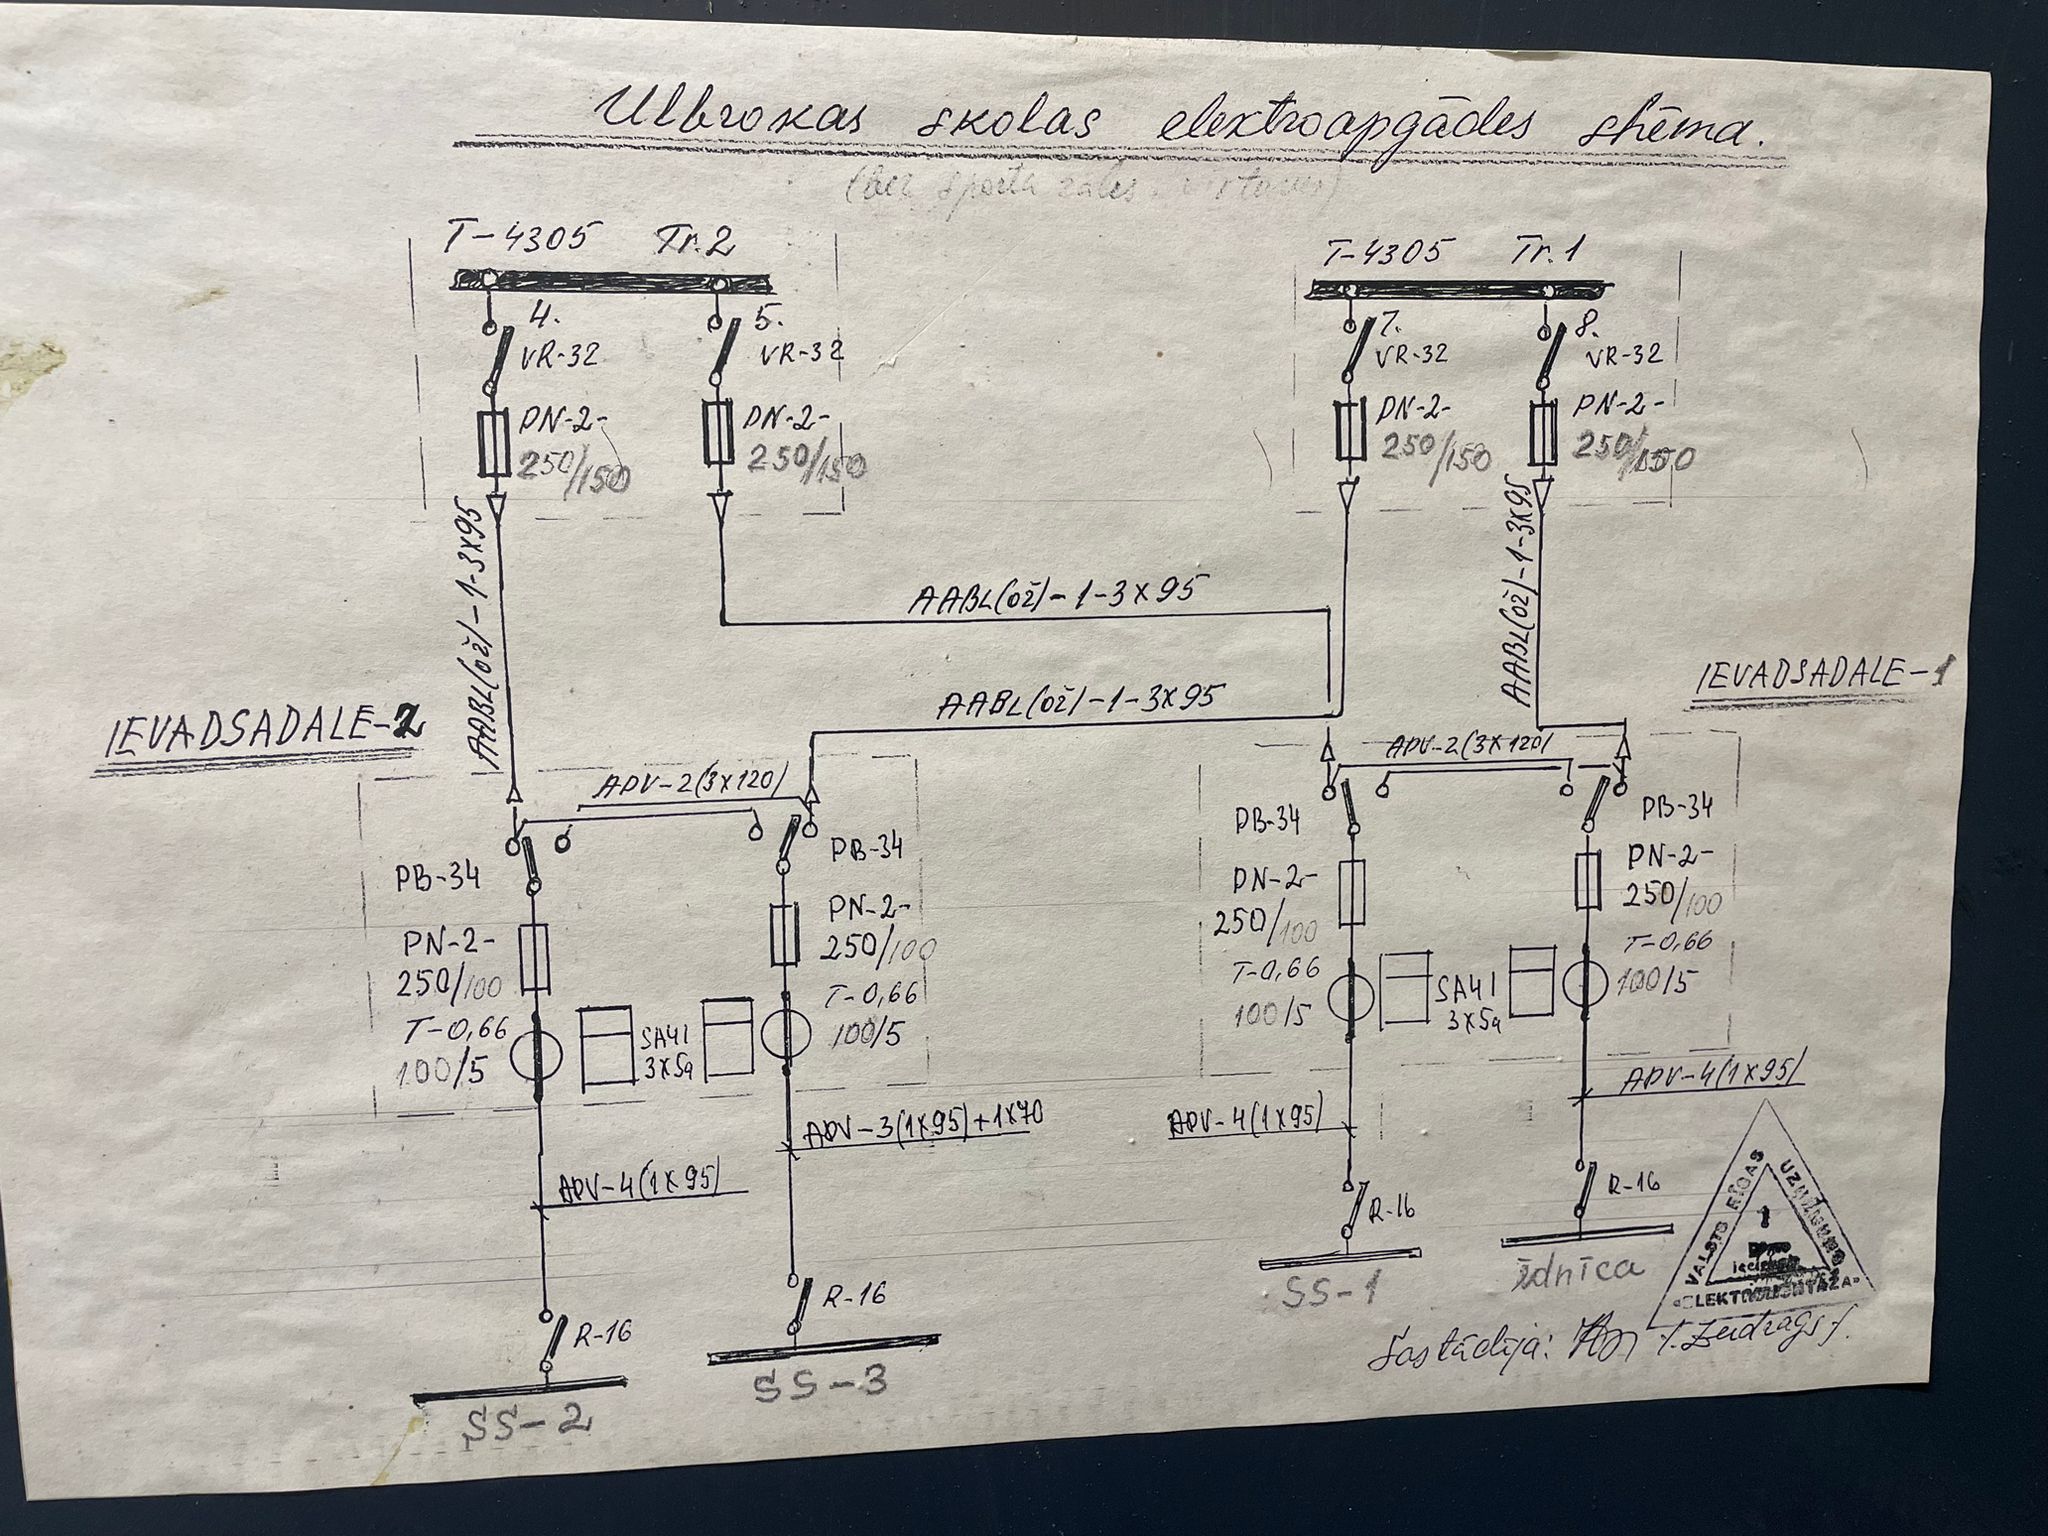 Ulbrokas skolas elektroapgādes shēma.
(bez sporta zāles
T-4305 Tr.2
4.
VR-32
PN-2-
250/150
5.
VR-32
PN-2-
250/150
T-4305 Tr.1
7.
VR-32
PN-2-
250/150
8.
VR-32
PN-2-
250/150
AABL(ož)-1-3x95
AABL(ož)-1-3x95
AABL(ož)-1-3x95
AABL(ož)-1-3x95
IEVADSADALE-2
IEVADSADALE-1
APV-2(3x120)
PB-34
PN-2-
250/100
T-0,66
100/5
SA4I
3x5a
PB-34
PN-2-
250/100
T-0,66
100/5
APV-2(3x120)
PB-34
PN-2-
250/100
T-0,66
100/5
SA4I
3x5a
PB-34
PN-2-
250/100
T-0,66
100/5
APV-4(1x95)
APV-3(1x95)+1x70
APV-4(1x95)
APV-4(1x95)
R-16
SS-2
R-16
SS-3
R-16
SS-1
R-16
ēdnīca
VALSTS RĪGAS
UZŅĒMUMS
«ELEKTROMONTĀŽA»
1
Sastādīja: